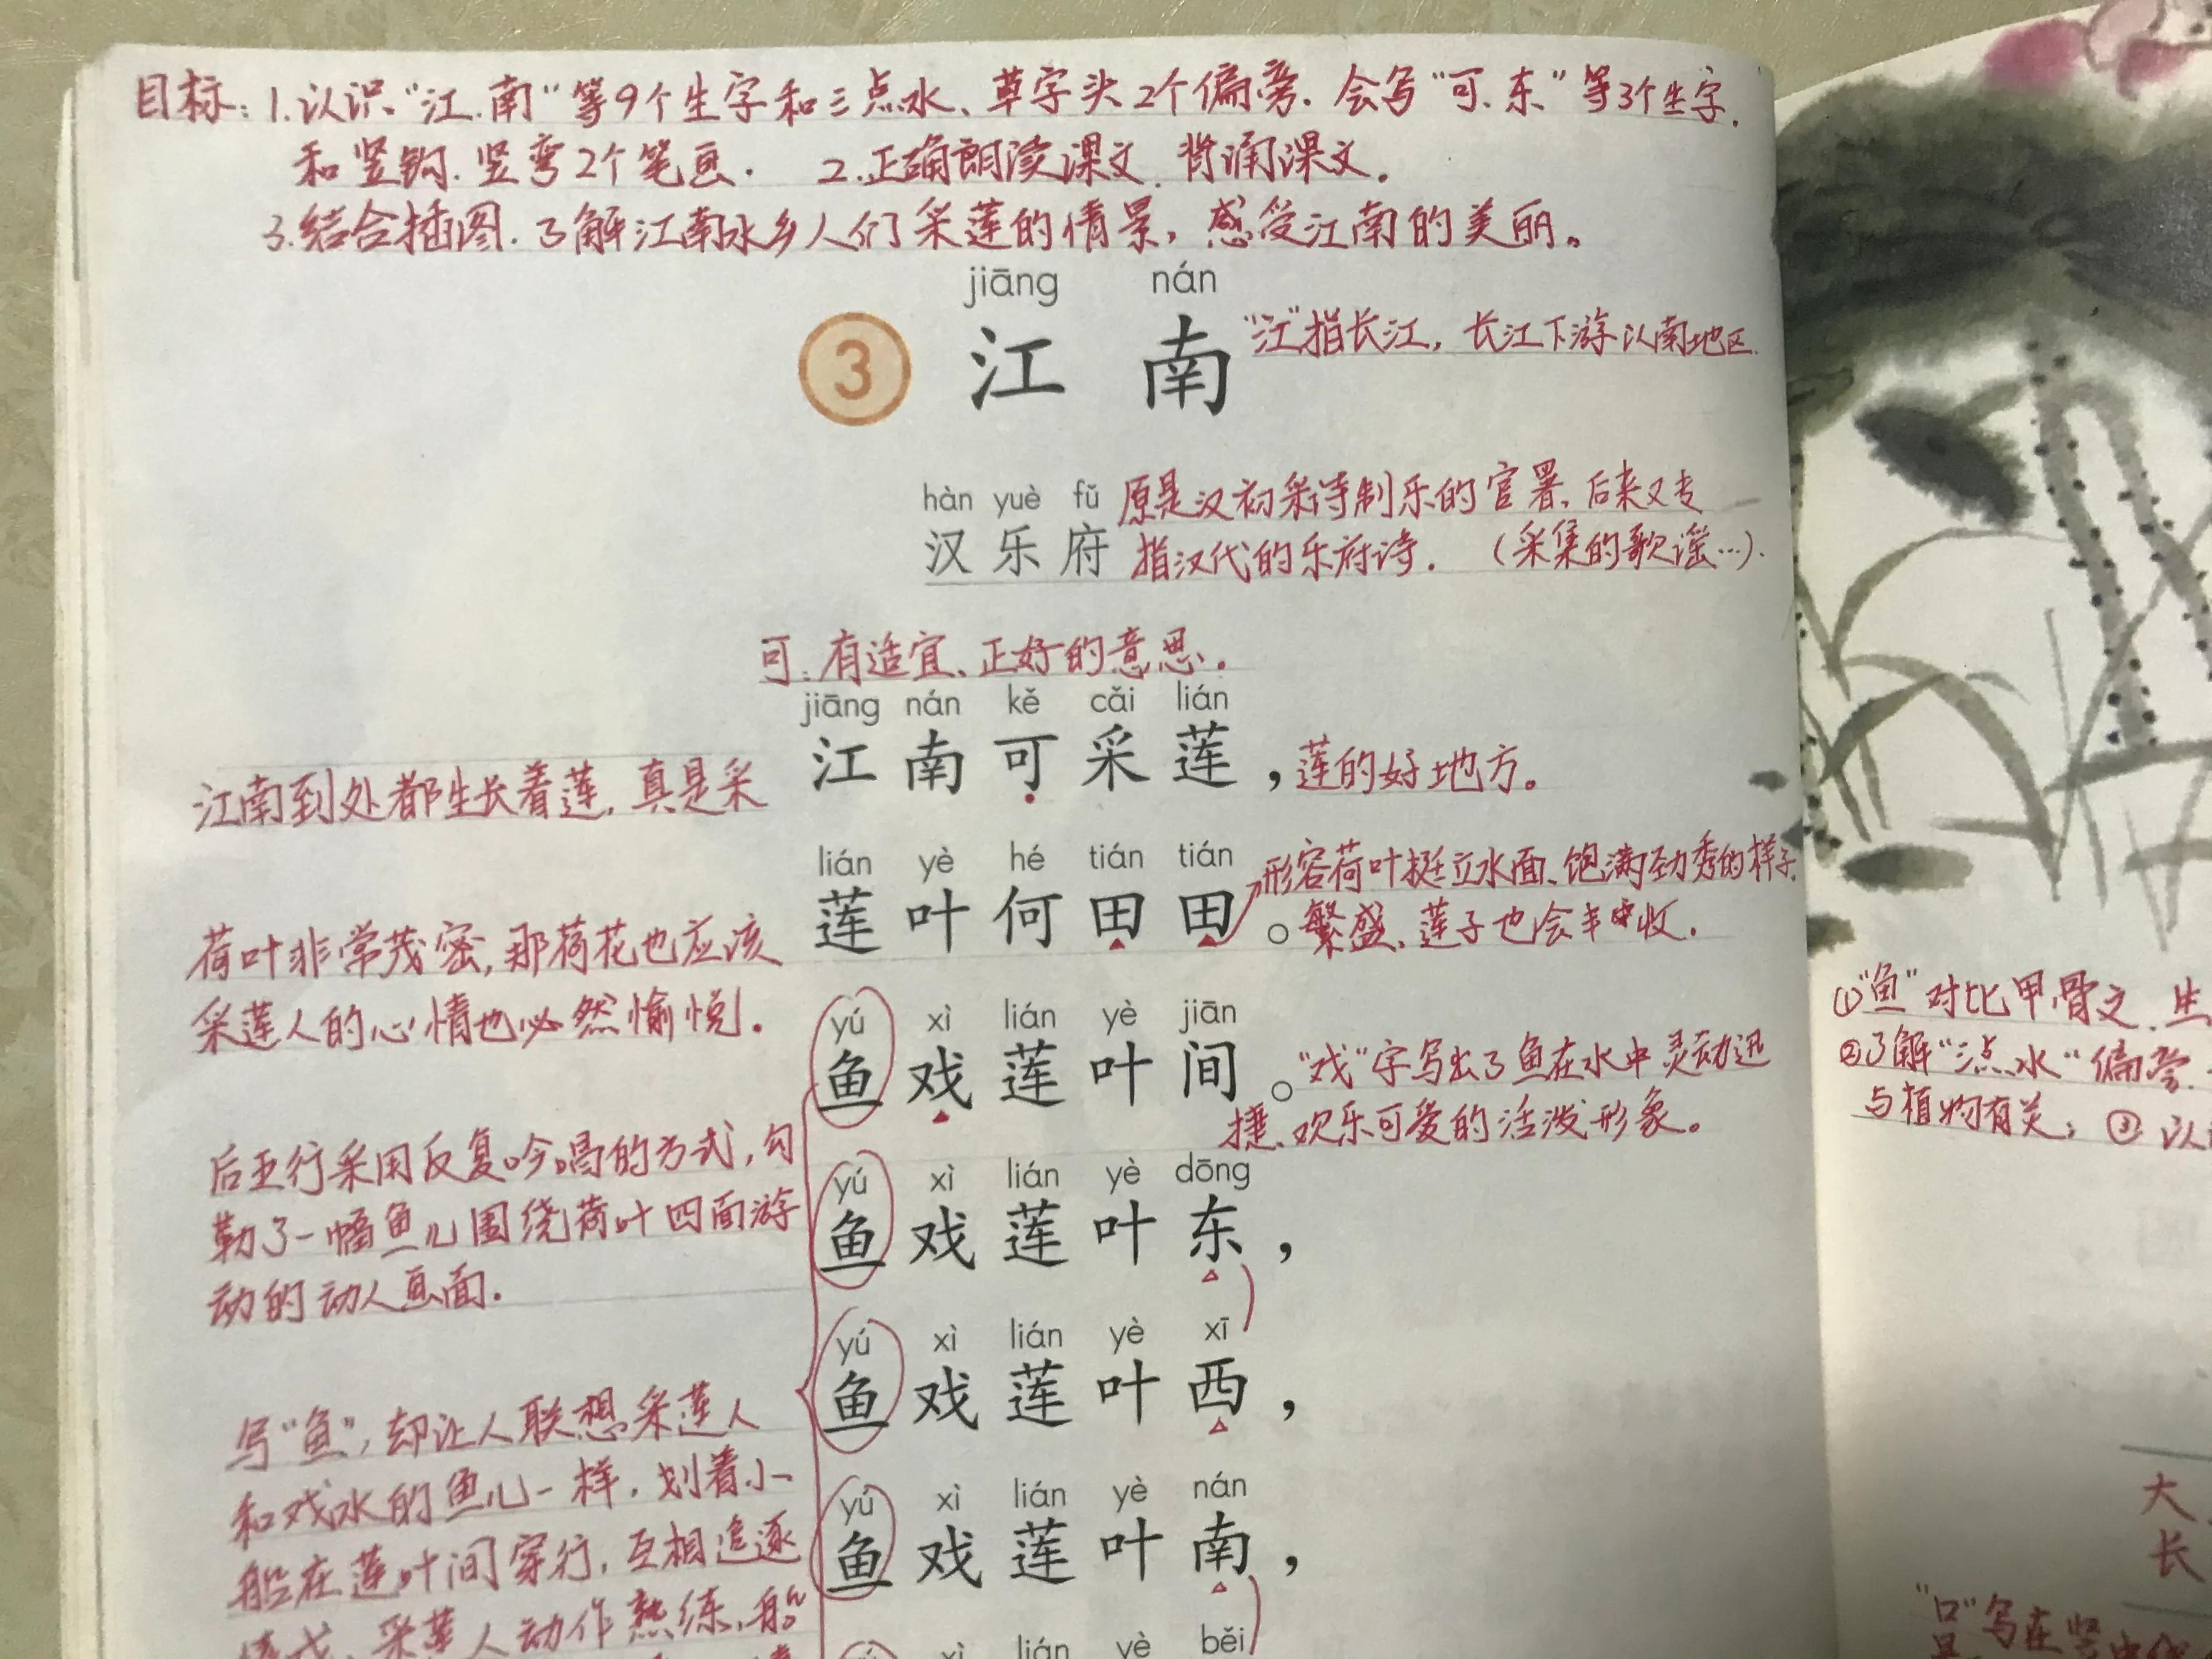 目标：1.认识“江、南”等9个生字和三点水、草字头2个偏旁．会写“可、东”等3个生字．
和竖钩、竖弯2个笔画． 2.正确朗读课文、背诵课文．
3.结合插图．了解江南水乡人们采莲的情景，感受江南的美丽。
jiāng nán
3 江南 “江”指长江，长江下游以南地区．
hàn yuè fǔ 原是汉初采诗制乐的官署、后来又专
汉乐府 指汉代的乐府诗． （采集的歌谣…）．
可：有适宜、正好的意思．
jiāng nán kě cǎi lián
江南可采莲，莲的好地方。
江南到处都生长着莲，真是采
lián yè hé tián tián 形容荷叶挺立水面、饱满劲秀的样子．
莲叶何田田。繁盛、莲子也会丰收．
荷叶非常茂密，那荷花也应该
采莲人的心情也必然愉悦．
yú xì lián yè jiān
鱼戏莲叶间。“戏”字写出了鱼在水中灵动迅
捷、欢乐可爱的活泼形象。
后五行采用反复吟唱的方式，勾
勒了一幅鱼儿围绕荷叶四面游
动的动人画面．
yú xì lián yè dōng
鱼戏莲叶东，
yú xì lián yè xī
鱼戏莲叶西，
写“鱼”，却让人联想采莲人
和戏水的鱼儿一样，划着小
船在莲叶间穿行，互相追逐
采莲人动作熟练、船
yú xì lián yè nán
鱼戏莲叶南，
xì lián yè běi
①“鱼”对比甲骨文、生
②了解“三点水”偏旁
与植物有关；③认
大
长
“口”写在竖